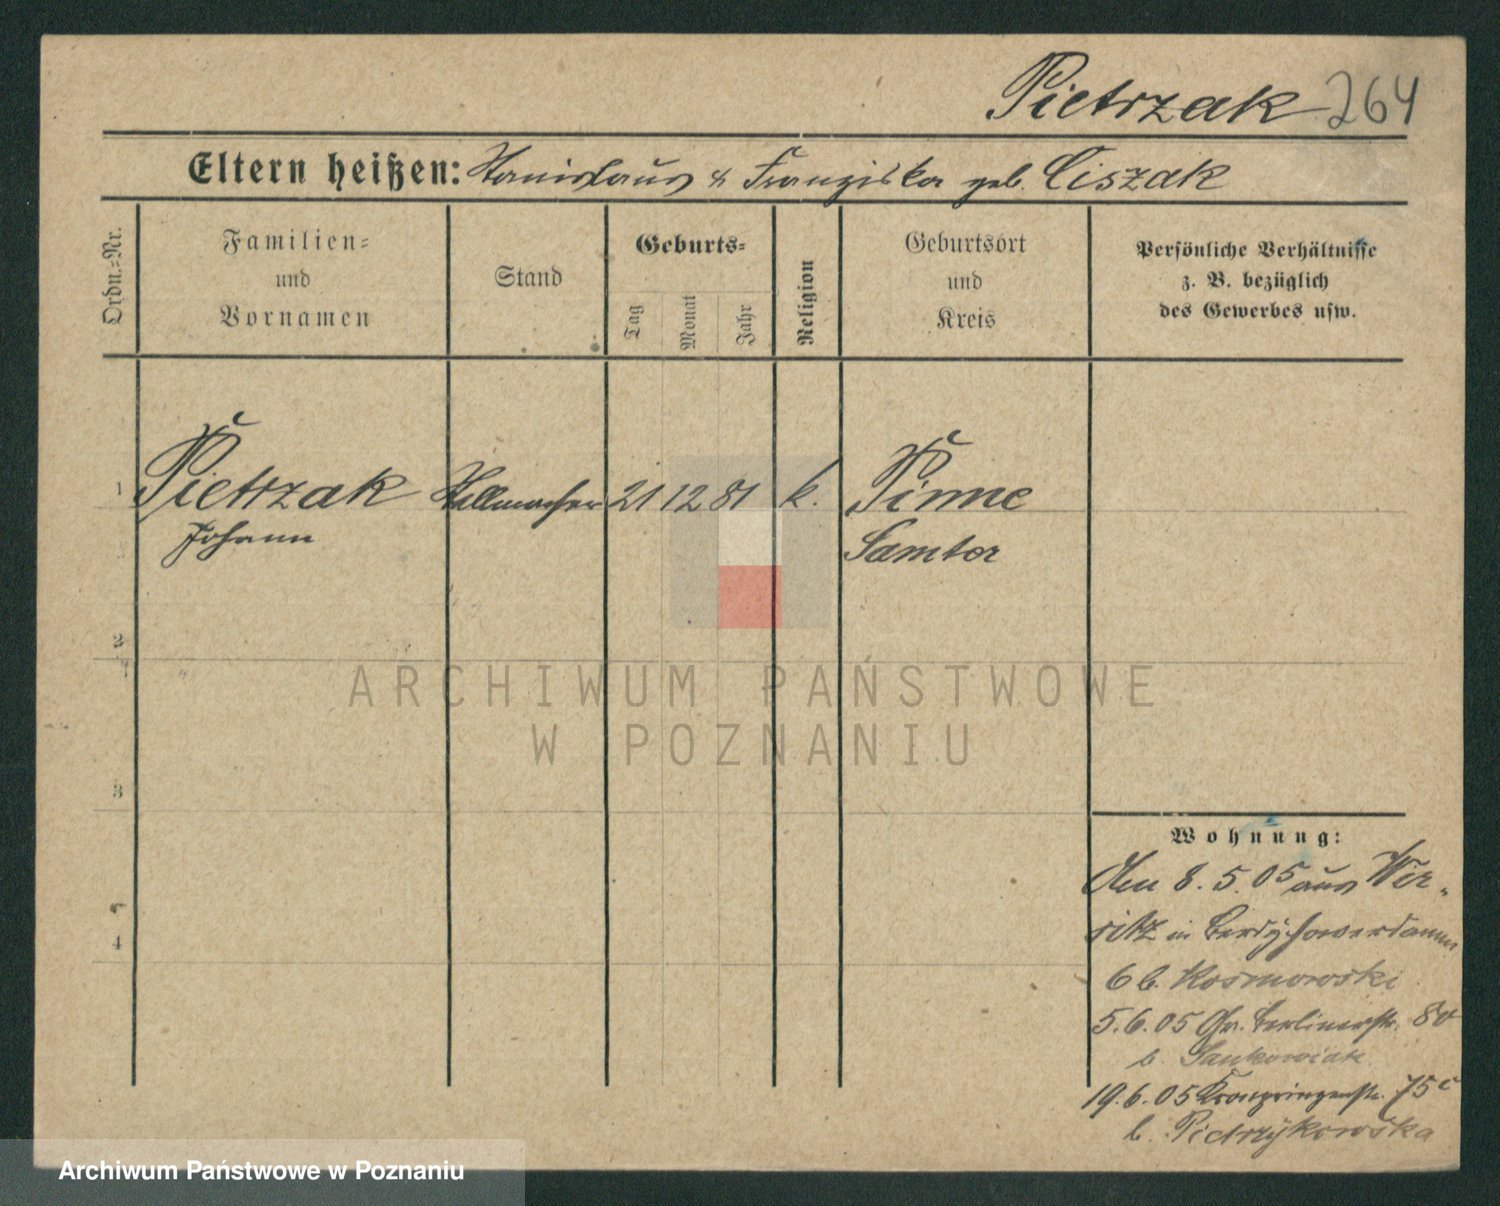 Pietrzak 264
Eltern heißen: Stanislaus & Franziska geb. Ciszak
Ordn.=Nr.
Familien=
und
Vornamen
Stand
Geburts=
Tag
Monat
Jahr
Religion
Geburtsort
und
Kreis
Persönliche Verhältnisse
z. B. bezüglich
des Gewerbes usw.
1 Pietrzak Stellmacher 21 12 81 k. Pinne
Johann Samter
2
3
4
Wohnung:
Am 8. 5. 05 aus Wir-
sitz in Berdychowerdamm
6 b. Kosmowski
5. 6. 05 Gr. Berlinerstr. 80
b. Jankowiak
19. 6. 05 Kronprinzenstr. 75c
b. Pietrzykowska
ARCHIWUM PAŃSTWOWE
W POZNANIU
Archiwum Państwowe w Poznaniu